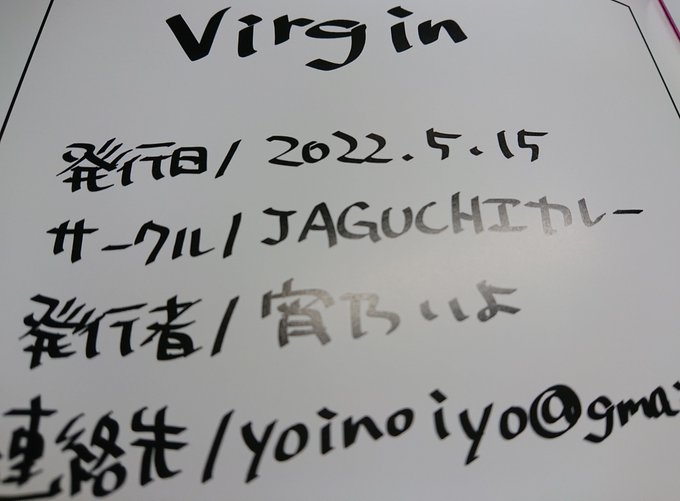 Virgin
発行日/2022.5.15
サークル/JAGUCHIカレー
発行者/宵乃いよ
連絡先/yoinoiyo@gma